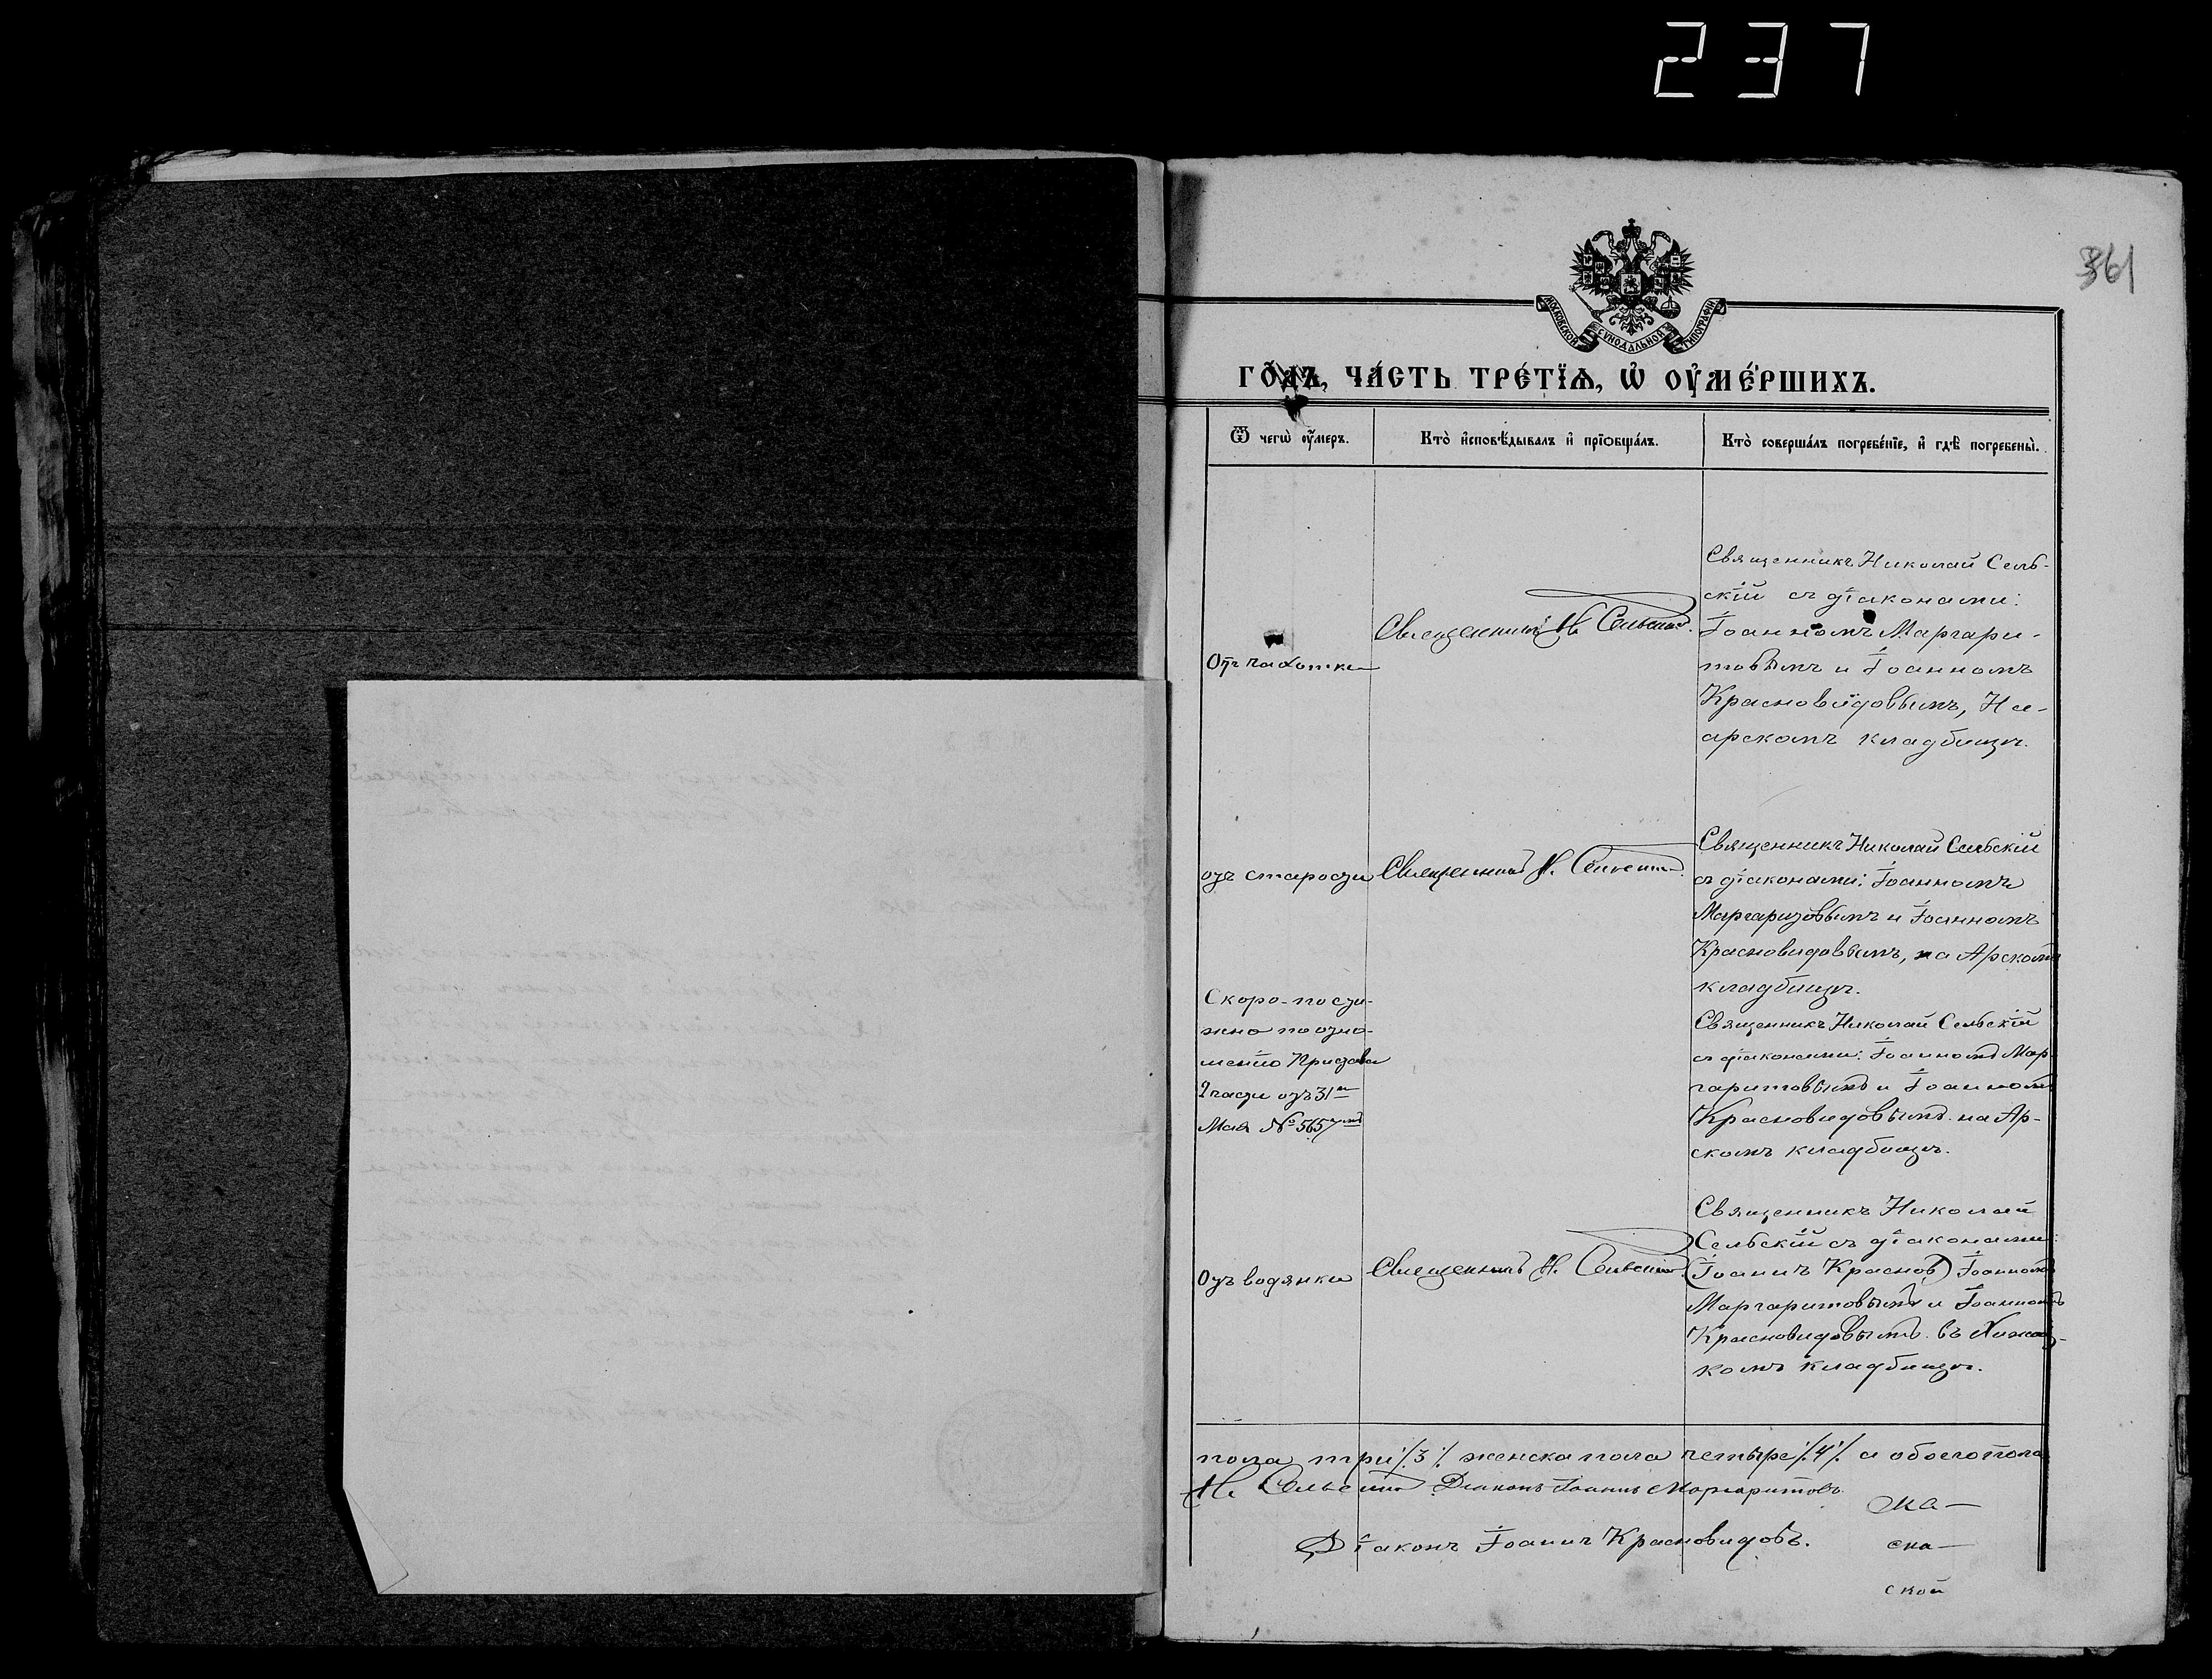 237
361
МОСКОВСКОЙ СѴНОДАЛЬНОЙ ТИПОГРАФІИ
ГО́ДЪ, ЧА́СТЬ ТРЕ́ТЇѦ, Ѡ҆ ОУ҆МЕ́РШИХЪ.
Ѿ чегѡ̀ оу҆́меръ.
Кто̀ и҆сповѣ́дывалъ и҆ прїѻбща́лъ.
Кто̀ соверша́лъ погребе́нїе, и҆ гдѣ̀ погребены̀.
Отъ чахотки
Священникъ Н. Сельскій
Священникъ Николай Сель-
скій съ діаконами:
Іоанномъ Маргари-
товымъ и Іоанномъ
Красновидовымъ, На
арскомъ кладбищѣ.
отъ старости
Священникъ Н. Сельскій
Священникъ Николай Сельскій
съ діаконами: Іоанномъ
Маргаритовымъ и Іоанномъ
Красновидовымъ, на Арскомъ
кладбищѣ.
Скоро-пости-
жно по отно-
шенію Пристава
2 части отъ 31го
Мая № 5657
Священникъ Николай Сельскій
съ діаконами: Іоанномъ Мар-
гаритовымъ и Іоанномъ
Красновидовымъ на Ар-
скомъ кладбищѣ.
Отъ водянки
Священникъ Н. Сельскій
Священникъ Николай
Сельскій съ діаконами:
(Іоаннъ Краснов) Іоанномъ
Маргаритовымъ и Іоанномъ
Красновидовымъ въ
комъ кладбищѣ.
пола три /3/ женска пола четыре /4/ а обоего пола
Н. Сельскій Діаконъ Іоаннъ Маргаритовъ
ма-
Діаконъ Іоаннъ Красновидовъ.
ска-
ской